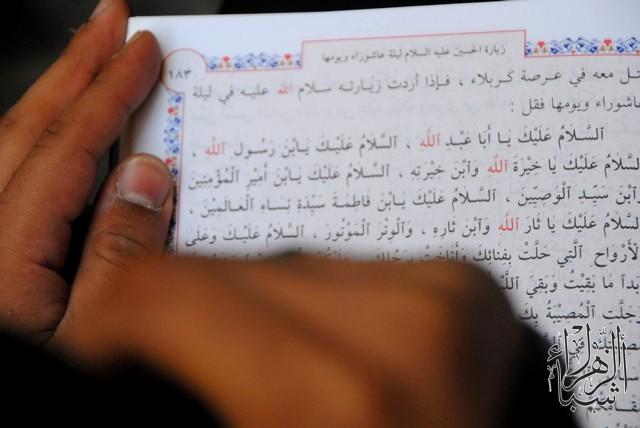 زيارة الحسين عليه السلام ليلة عاشوراء ويومها
١٨٣
معه في عرصة كربلاء ، فإذا أردت زيارته سلام الله عليه في ليلة
عاشوراء ويومها فقل :
السَّلامُ عَلَيْكَ يَا أَبَا عَبْدِ ٱللهِ ، ٱلسَّلَامُ عَلَيْكَ يَابْنَ رَسُولِ ٱللهِ ،
السَّلامُ عَلَيْكَ يَا خِيَرَةَ ٱللهِ وَٱبْنَ خِيَرَتِهِ ، ٱلسَّلَامُ عَلَيْكَ يَابْنَ أَمِيرِ ٱلْمُؤْمِنِينَ
وَٱبْنَ سَيِّدِ ٱلْوَصِيِّينَ ، ٱلسَّلَامُ عَلَيْكَ يَابْنَ فَاطِمَةَ سَيِّدَةِ نِسَاءِ ٱلْعَالَمِينَ ،
السَّلامُ عَلَيْكَ يَا ثَارَ ٱللهِ وَٱبْنَ ثَارِهِ ، وَٱلْوِتْرَ ٱلْمَوْتُورَ ، ٱلسَّلَامُ عَلَيْكَ وَعَلَى
الأَرْوَاحِ ٱلَّتِي حَلَّتْ بِفِنَائِكَ وَأَنَاخَتْ بِرَحْلِكَ
أَبَداً مَا بَقِيتُ وَبَقِيَ
وَجَلَّتِ ٱلْمُصِيبَةُ بِكَ
شباب الزهراء